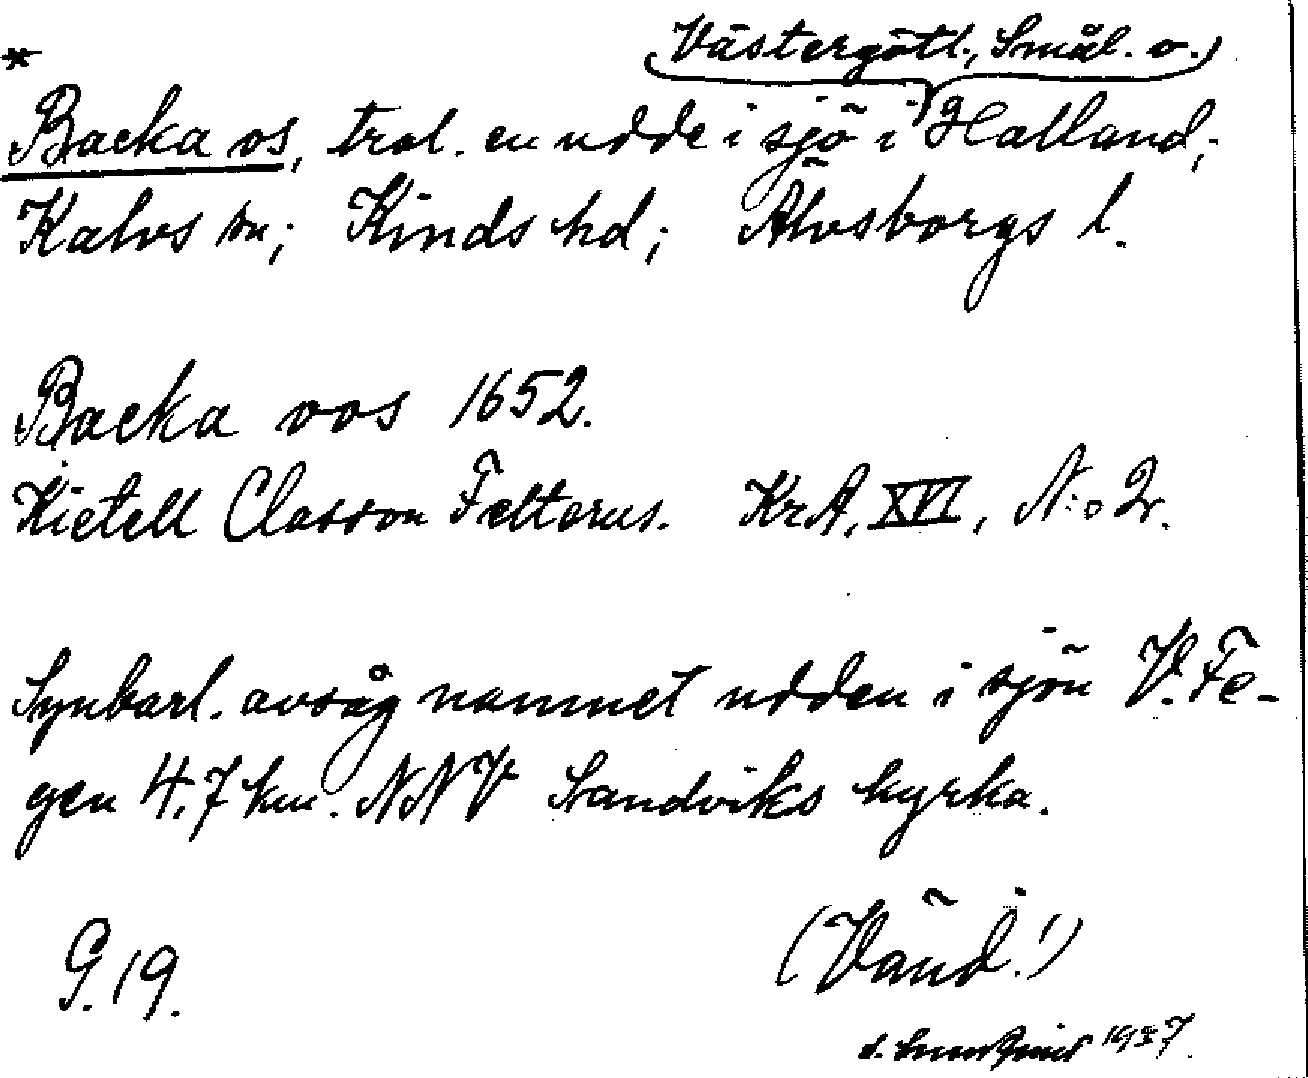 *
Västergötl., Smål. o.
Backa os, trol. en udde i sjö i Halland;
Kalvs sn; Kinds hd; Älvsborgs l.
Backa oos 1652.
Kietell Classon Felterus. KrA, XVI, N:o 2.
Synbarl. avsåg namnet udden i sjön V. Fe-
gen 4,7 km. NNV Sandviks kyrka.
G. 19.
(Vänd!)
1937